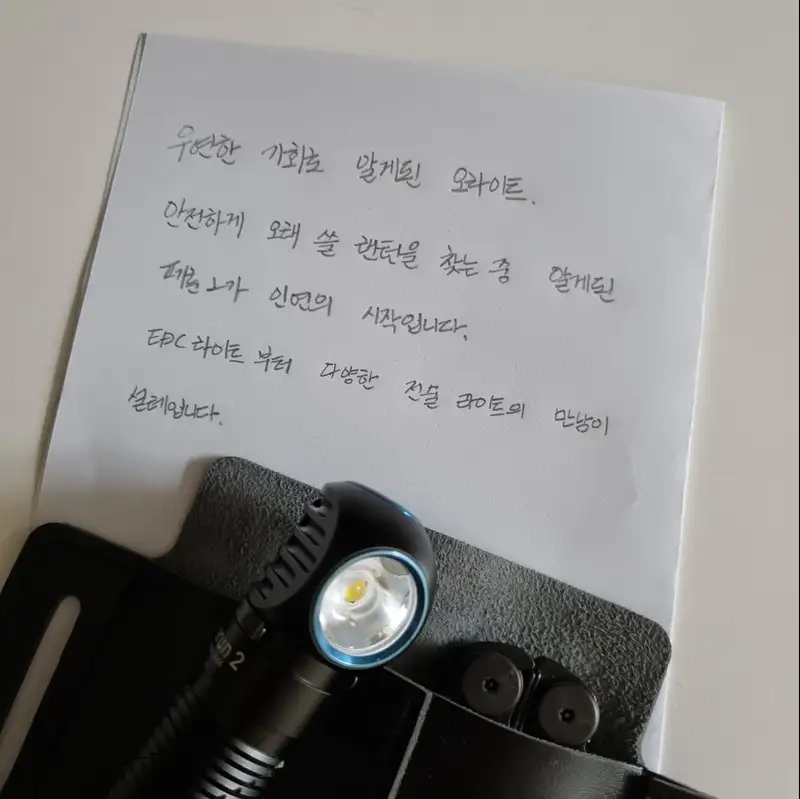 우연한 기회로 알게된 오라이트.
안전하게 오래 쓸 랜턴을 찾는 중 알게된
퍼룬2가 인연의 시작입니다.
EDC 라이트 부터 다양한 전술 라이트의 만남이
설레입니다.
un 2